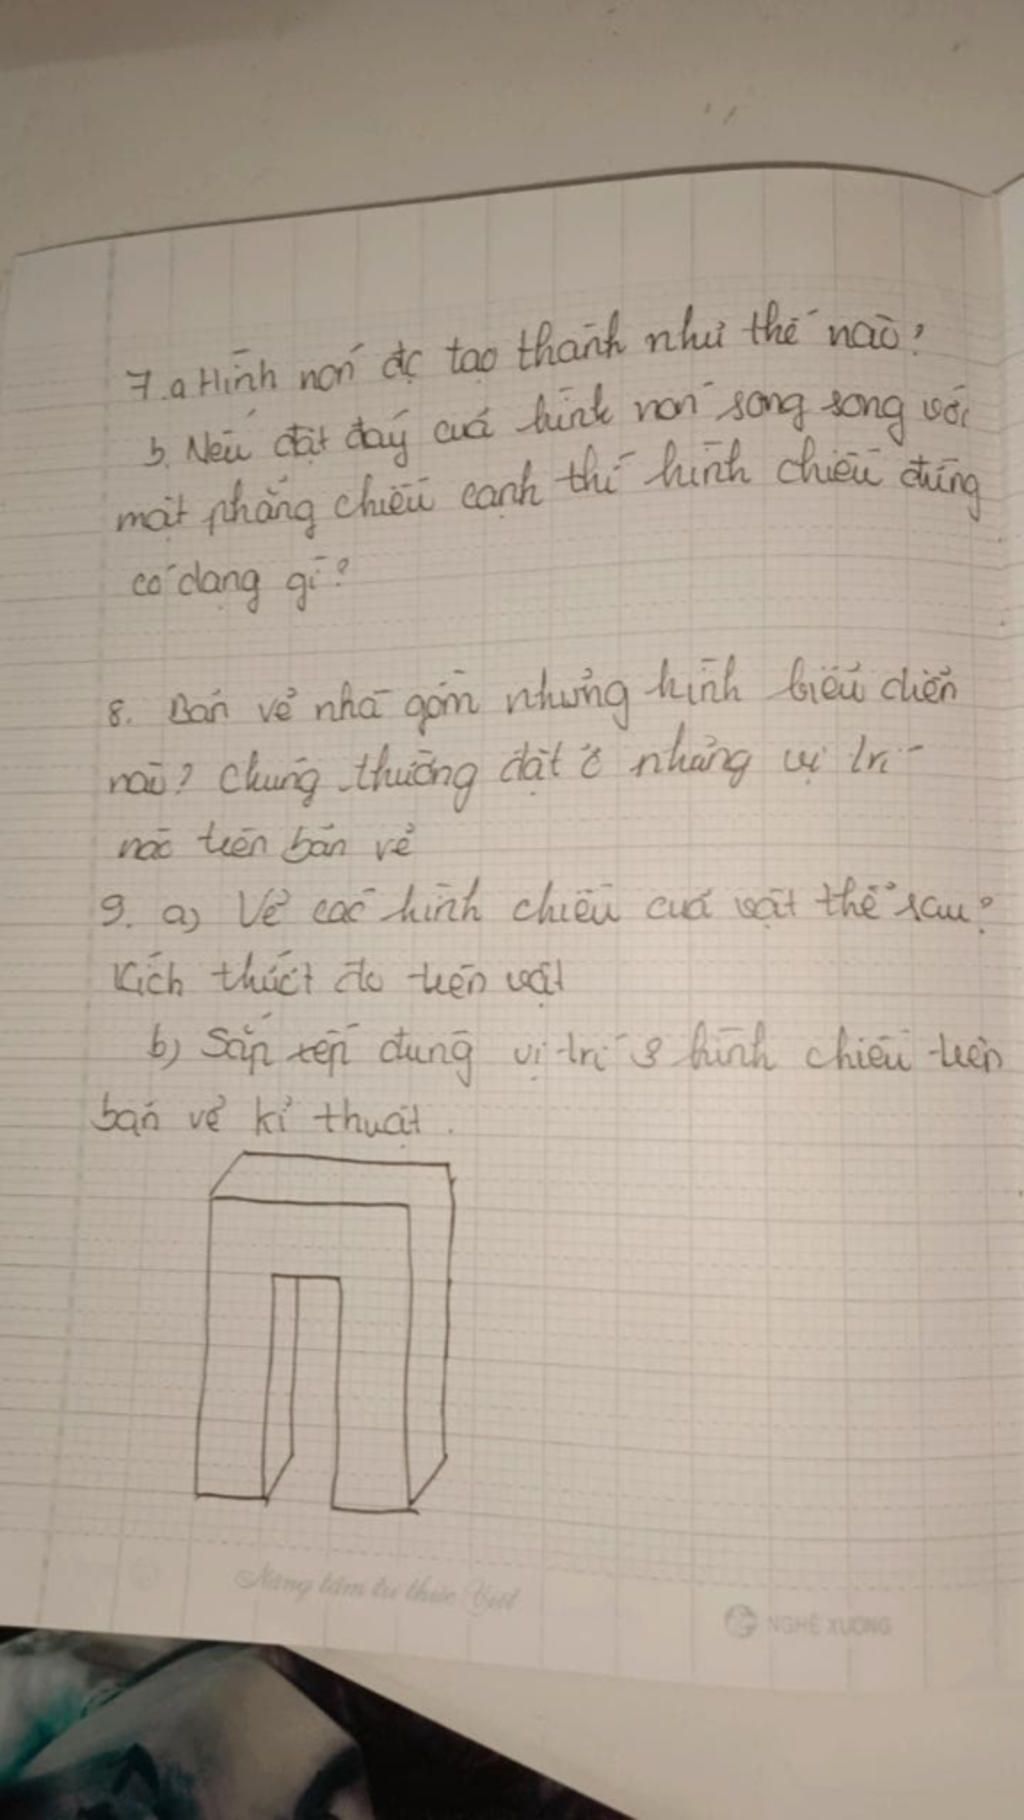 7.a Hình nón đc tạo thành như thế nào?
b. Nếu đặt đáy của hình nón song song với
mặt phẳng chiếu cạnh thì hình chiếu đứng
có dạng gì?
8. Bản vẽ nhà gồm những hình biểu diễn
nào? Chúng thường đặt ở những vị trí
nào trên bản vẽ
9. a) Vẽ các hình chiếu của vật thể sau?
Kích thướt đo trên vật
b) Sắp xếp đúng vị trí 3 hình chiếu trên
bản vẽ kĩ thuật.
Nâng tầm tri thức Việt
NGHÊ XUÔNG